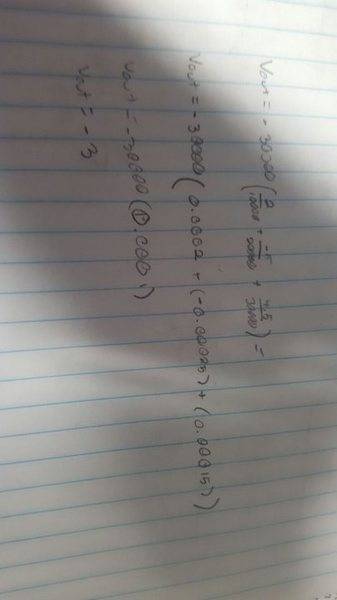 Vout = -30000 (2/10000 + -5/20000 + 4.5/30000) =
Vout = -30000 (0.0002 + (-0.00025) + (0.00015))
Vout = -30000 (0.0001)
Vout = -3